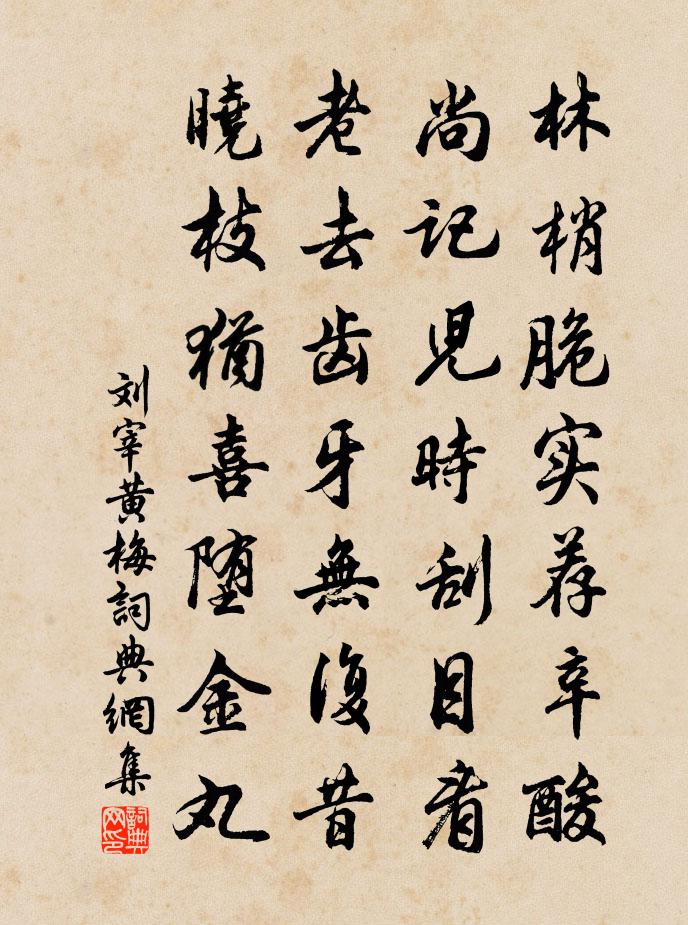 林梢脆实荐辛酸
尚记児時刮目看
老去齿牙無復昔
曉枝猶喜堕金丸
刘宰黄梅詞典網集
詞典网印